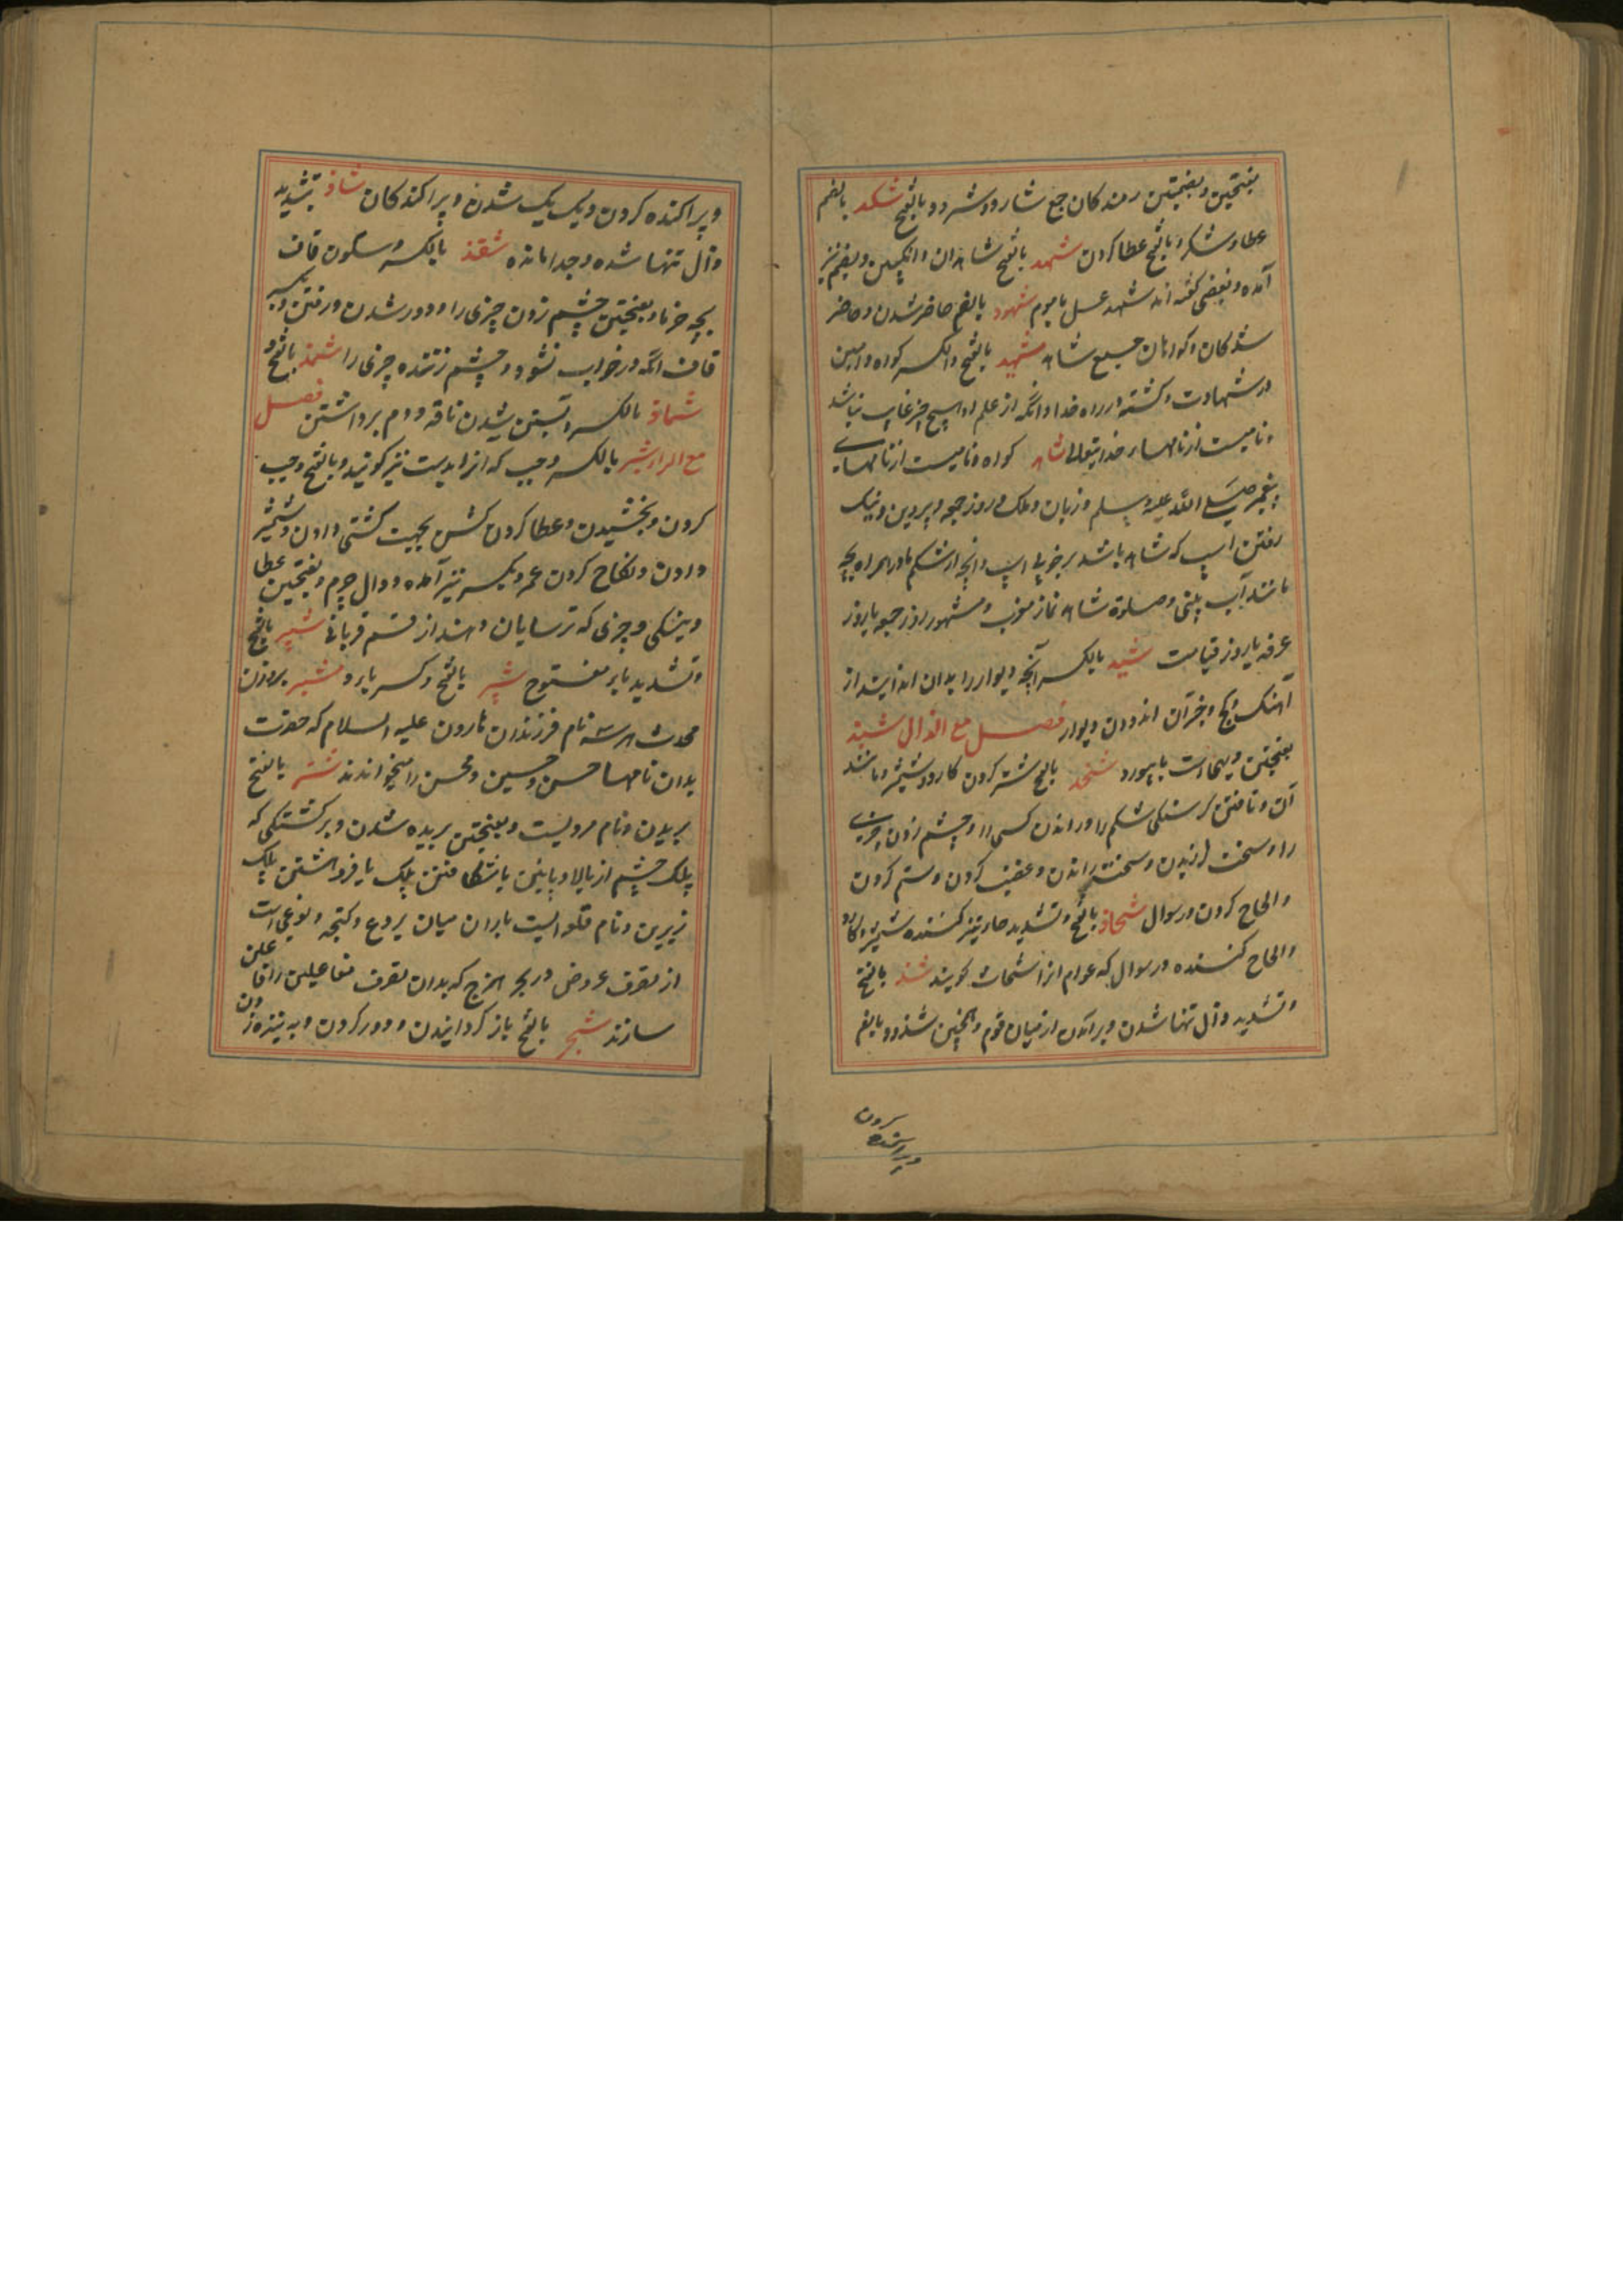 بفتحتین و بضمتین رمندکان جمع شارد و شرود و بالفتح شکد بالضم
عطا و شکر و بالفتح عطا کردن شهد بالفتح شاهدان و انکبین و بضم نیز
آمده و بعضی کفته اند شهد عسل با موم شهود بالضم حاضر شدن و حاضر
شدکان و کواهان جمع شاهد شهید بالفتح و الکسر کواه و امین
در شهادت و کشته در راه خدا و انکه از علم او هیچ چیز غایب نباشد
و نامیست از نامهاء خدایتعالی شاهد کواه و نامیست از نامهای
پیغمبر صلی الله علیه وسلم و زبان و ملک و روز جمعه و پروین و نیک
رفتن اسپ که شاهد باشد بر خوبی اسپ و انچه از شکم مادر همراه بچه
مانند آب بینی و صلوة شاهد نماز مغرب و مشهود روز جمعه یا روز
عرفه یا روز قیامت شید بالکسر آنچه دیوار را بدان اندایند از
آهک و کچ و جز آن اندودن دیوار فصل مع الذال شبذ
بفتحتین دیهی است بابیورد شحذ بالفتح تیز کردن کارد و شمشیر و مانند
آن و تافتن کرسنکی شکم را و راندن کسی را و چشم زدن چیزی
را و سخت راندن و خشم کردن و ستم کردن
و الحاح کردن در سوال شحاذ بالفتح و تشدید حاء تیز کننده شمشیر و کارد
و الحاح کننده در سوال که عوام انرا شحاث کویند شذ بالفتح
و تشدید ذال تنها شدن و برآمدن از میان قوم و همچنین شذوذ بالضم
و پراکنده کردن
و پراکنده کردن و یک یک شدن و پراکندکان شاذ بتشدید
ذال تنها شده و جدا مانده شقذ بالکسر و سکون قاف
بچه حرباء و بفتحتین چشم زدن چیزی را و دور شدن و رفتن و بکسر
قاف انکه در خواب نشود و چشم زننده چیزی را شمذ بالفتح و
شماذ بالکسر آبستن شدن ناقه و دم برداشتن فصل
مع الراء شبر بالکسر وجب که انرا بدست نیز کویند و بالفتح وجب
کردن و بخشیدن و عطا کردن کشن بجهت کشنی دادن و شمشیر
دادن و نکاح کردن عمر و بکسر نیز آمده و دوال چرم و بفتحتین عطا
و نیکی و چیزی که ترسایان دهند از قسم قربانی شبر بالفتح
و تشدید باء مفتوح شبیر بالفتح و کسر باء و مشبر بروزن
محدث هر سه نام فرزندان هارون علیه السلام که حضرت
بدان نامها حسن و حسین و محسن را میخواندند شتر بالفتح
بریدن و نام مردیست و بفتحتین بریده شدن و برکشتکی که
پلک چشم از بالا و پایین یا شکافتن پلک یا فروهشتن پلک
زیرین و نام قلعه ایست باران میان بردع و کنجه و نوعی است
از تصرف عروض در بحر هزج که بدان تصرف مفاعیلن را فاعلن
سازند شجر بالفتح باز کردانیدن و دور کردن و به نیزه زدن